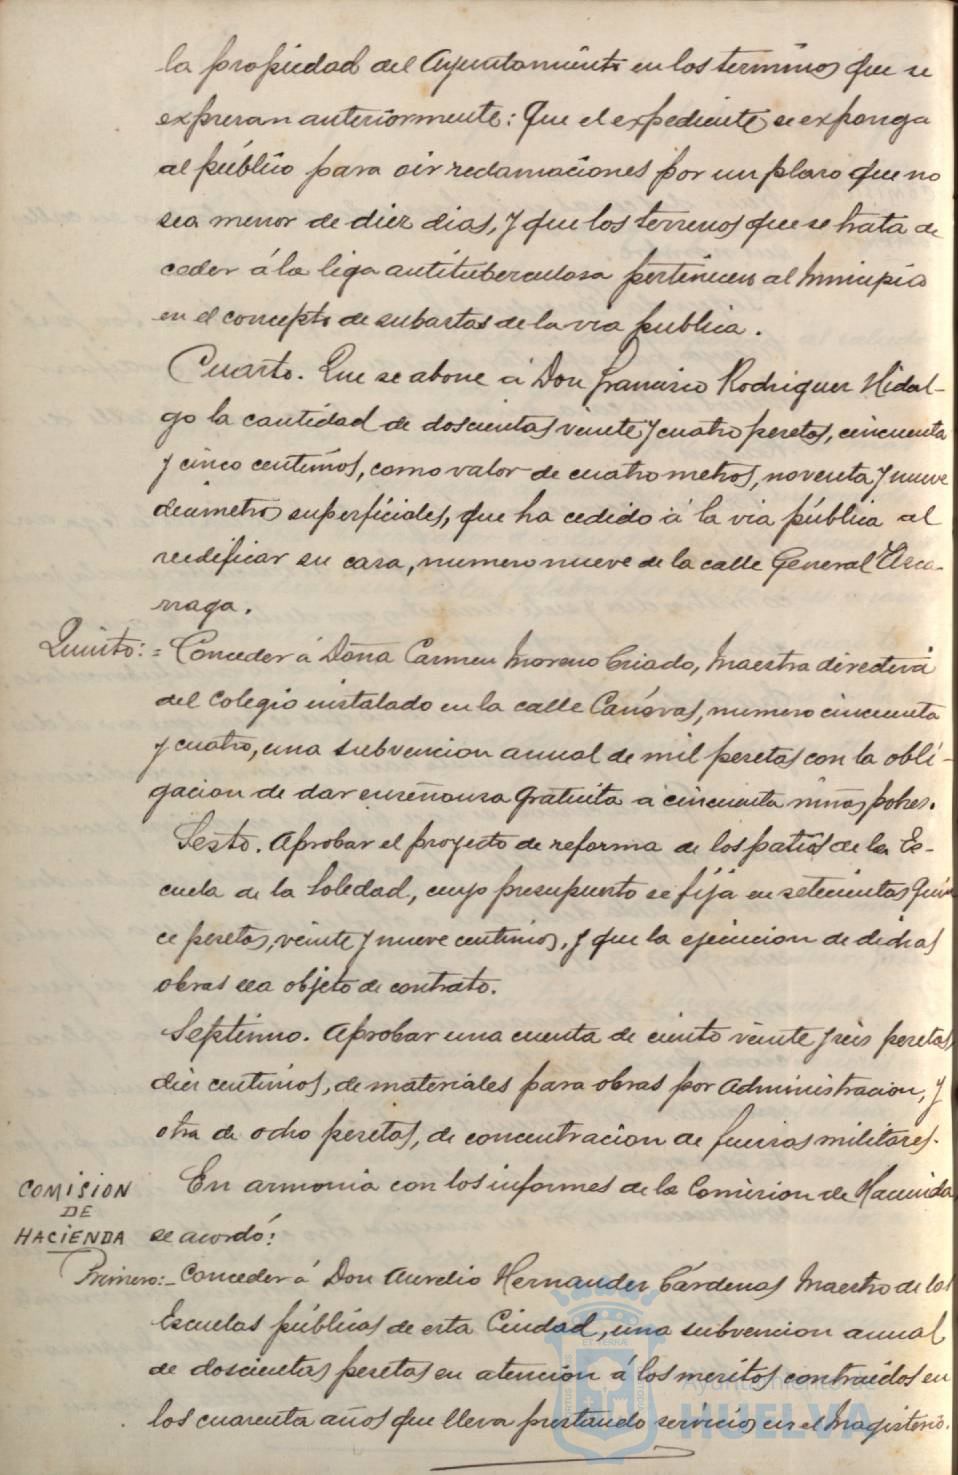 la propiedad del Ayuntamiento en los terminos que se
expresan anteriormente: Que el expediente se exponga
al público para oir reclamaciones por un plazo que no
sea menor de diez dias, y que los terrenos que se trata de
ceder á la liga antituberculosa pertenecen al Municipio
en el concepto de subastas de la via publica.
Cuarto. Que se abone á Don Francisco Rodriguez Hidal-
go la cantidad de doscientas veinte y cuatro pesetas, cincuenta
y cinco centimos, como valor de cuatro metros, noventa y nueve
decimetros superficiales, que ha cedido á la via pública al
reedificar su casa, numero nueve de la calle General Azca-
rraga.
Quinto: = Conceder á Doña Carmen Moreno Criado, Maestra directora
del Colegio instalado en la calle Canovas, numero cincuenta
y cuatro, una subvencion anual de mil pesetas con la obli-
gacion de dar enseñanza gratuita a cincuenta niños pobres.
Sexto. Aprobar el proyecto de reforma de los patios de la Es-
cuela de la Soledad, cuyo presupuesto se fija en setecientas quin
ce pesetas, veinte y nueve centimos, y que la ejecucion de dichas
obras sea objeto de contrato.
Septimo. Aprobar una cuenta de ciento veinte y seis pesetas,
diez centimos, de materiales para obras por Administracion, y
otra de ocho pesetas, de concentracion de fuerzas militares.
COMISION
DE
HACIENDA
En armonia con los informes de la Comision de Hacienda
se acordó:
Primero:- Conceder á Don Aurelio Hernandez Cárdenas Maestro de las
Escuelas públicas de esta Ciudad, una subvencion anual
de doscientas pesetas en atencion á los meritos contraidos en
los cuarenta años que lleva prestando servicios en el Magisterio.
Ayuntamiento de
HUELVA